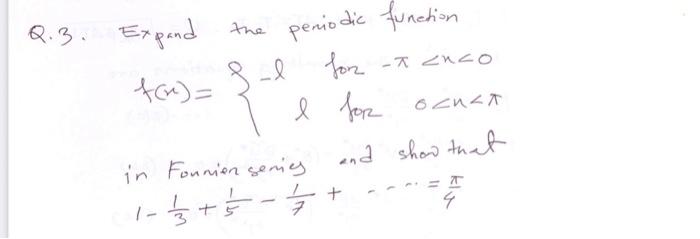 Q.3. Expand the periodic function
f(x) = { -l for -π < x < 0
l for 0 < x < π
in Fourier series and show that
1 - 1/3 + 1/5 - 1/7 + ---- = π/4